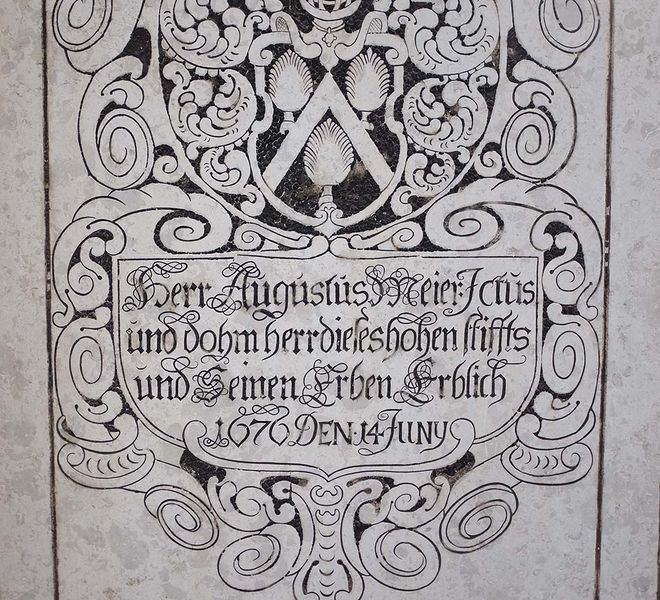 Herr Augustus Meier Jctus
und dohm herr dieses hohen stiffts
und Seinen Erben Erblich
1676 DEN 14 JUNY